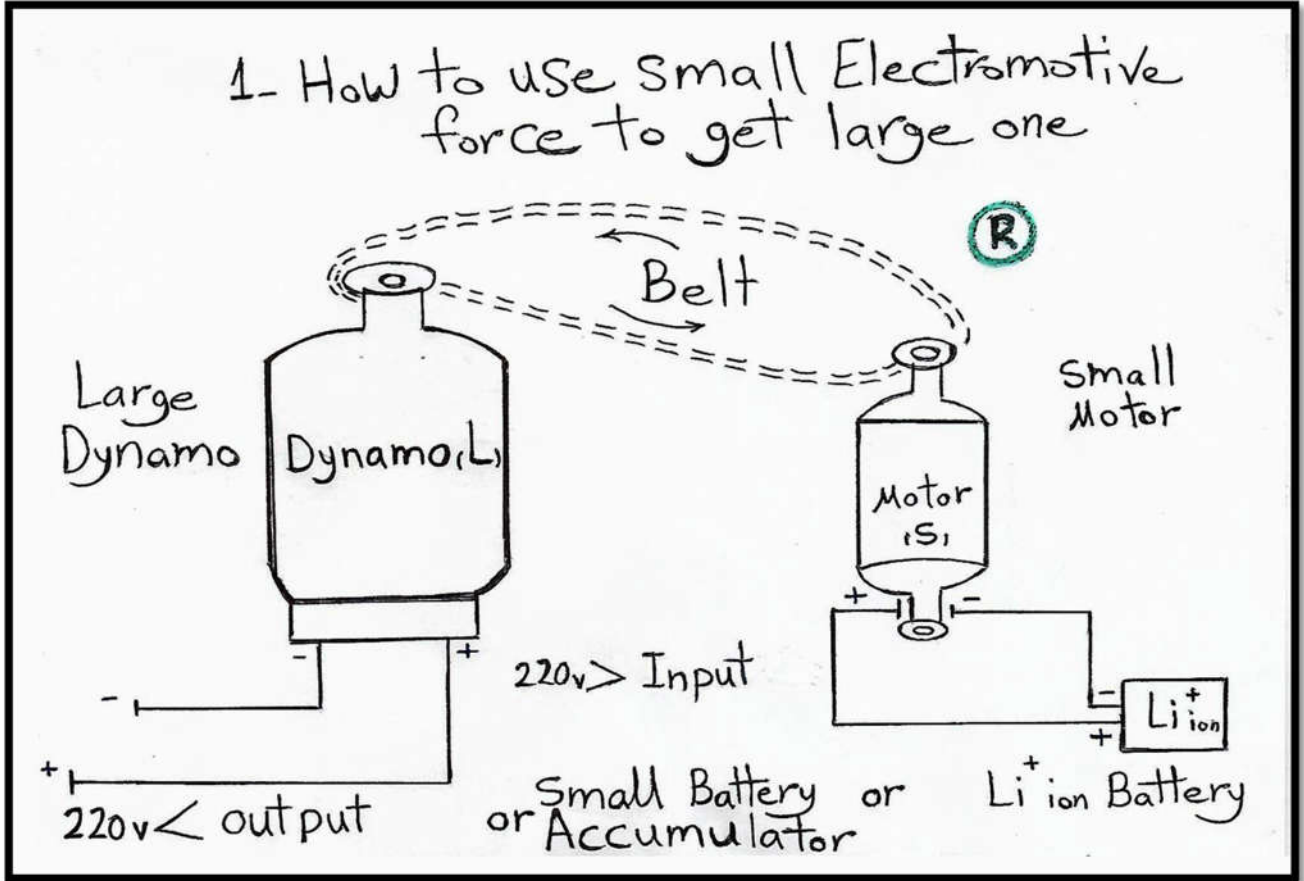 1- How to use small Electromotive
force to get large one
R
Belt
Large
Dynamo
Dynamo(L)
Small
Motor
Motor
(S)
+ -
- +
220v> Input
-
Li+ ion
-
+
+
220v< output
or Small Battery or Li+ ion Battery
Accumulator